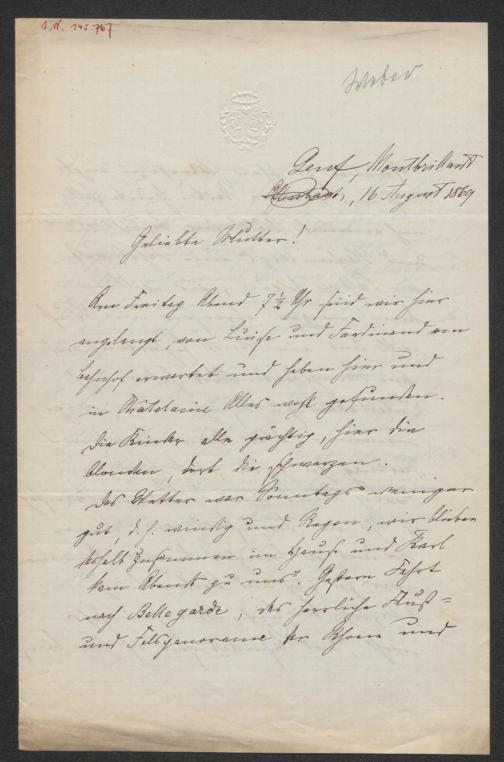 J. N. 145.767
Weber
Genf, Montbrillant
16 August 1869
Geliebte Mutter!
Am Freitag Abend 7 1/2 Uhr sind wir hier
angelangt, von Luise und Ferdinand am
Bahnhof erwartet und haben hier und
in Châtelaine Alles wohl gefunden.
Die Kinder alle prächtig, hier die
blonden, dort die schwarzen.
Das Wetter war Sonntags weniger
gut, d. h. windig und Regen, wir blieben
deshalb zusammen im Hause und Karl
kam Abends zu uns. Gestern Fahrt
nach Bellegarde, das herrliche Fluß=
und Felspanorama der Rhone und